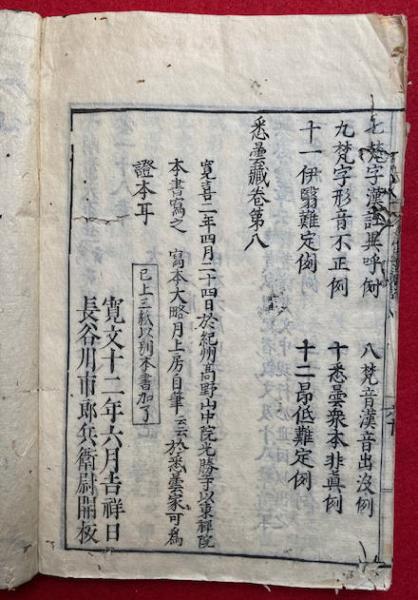 七 梵字漢語異呼例 八 梵音漢音出沒例
九 梵字形音不正例 十 悉曇衆本非眞例
十一 伊翳難定例 十二 昂低難定例
悉曇藏卷第八
寛喜二年四月二十四日於紀州髙野山中院光勝房以東禪院
本書寫之 寫本大略月上房自筆云云於悉曇家可爲
證本耳
已上三紙以別本書加了
寛文十二年六月吉祥日
長谷川市郎兵衛尉開板